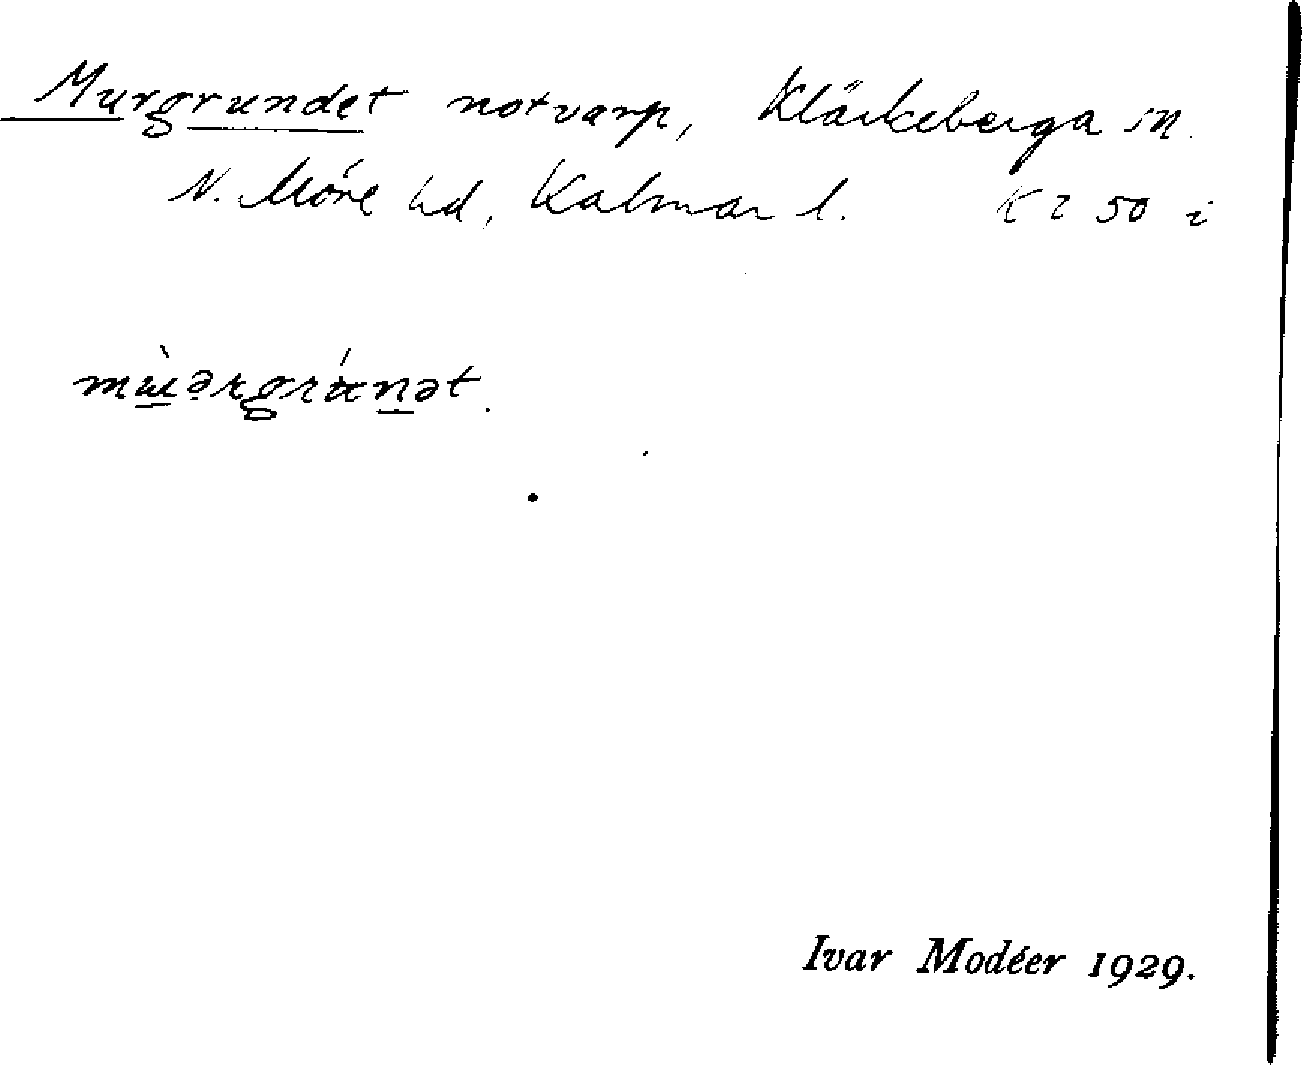 Murgrundet notvarp, Kläckeberga sn.
N. Möre hd, Kalmar l. K 2 50 i
mùərgrúnət.
Ivar Modéer 1929.